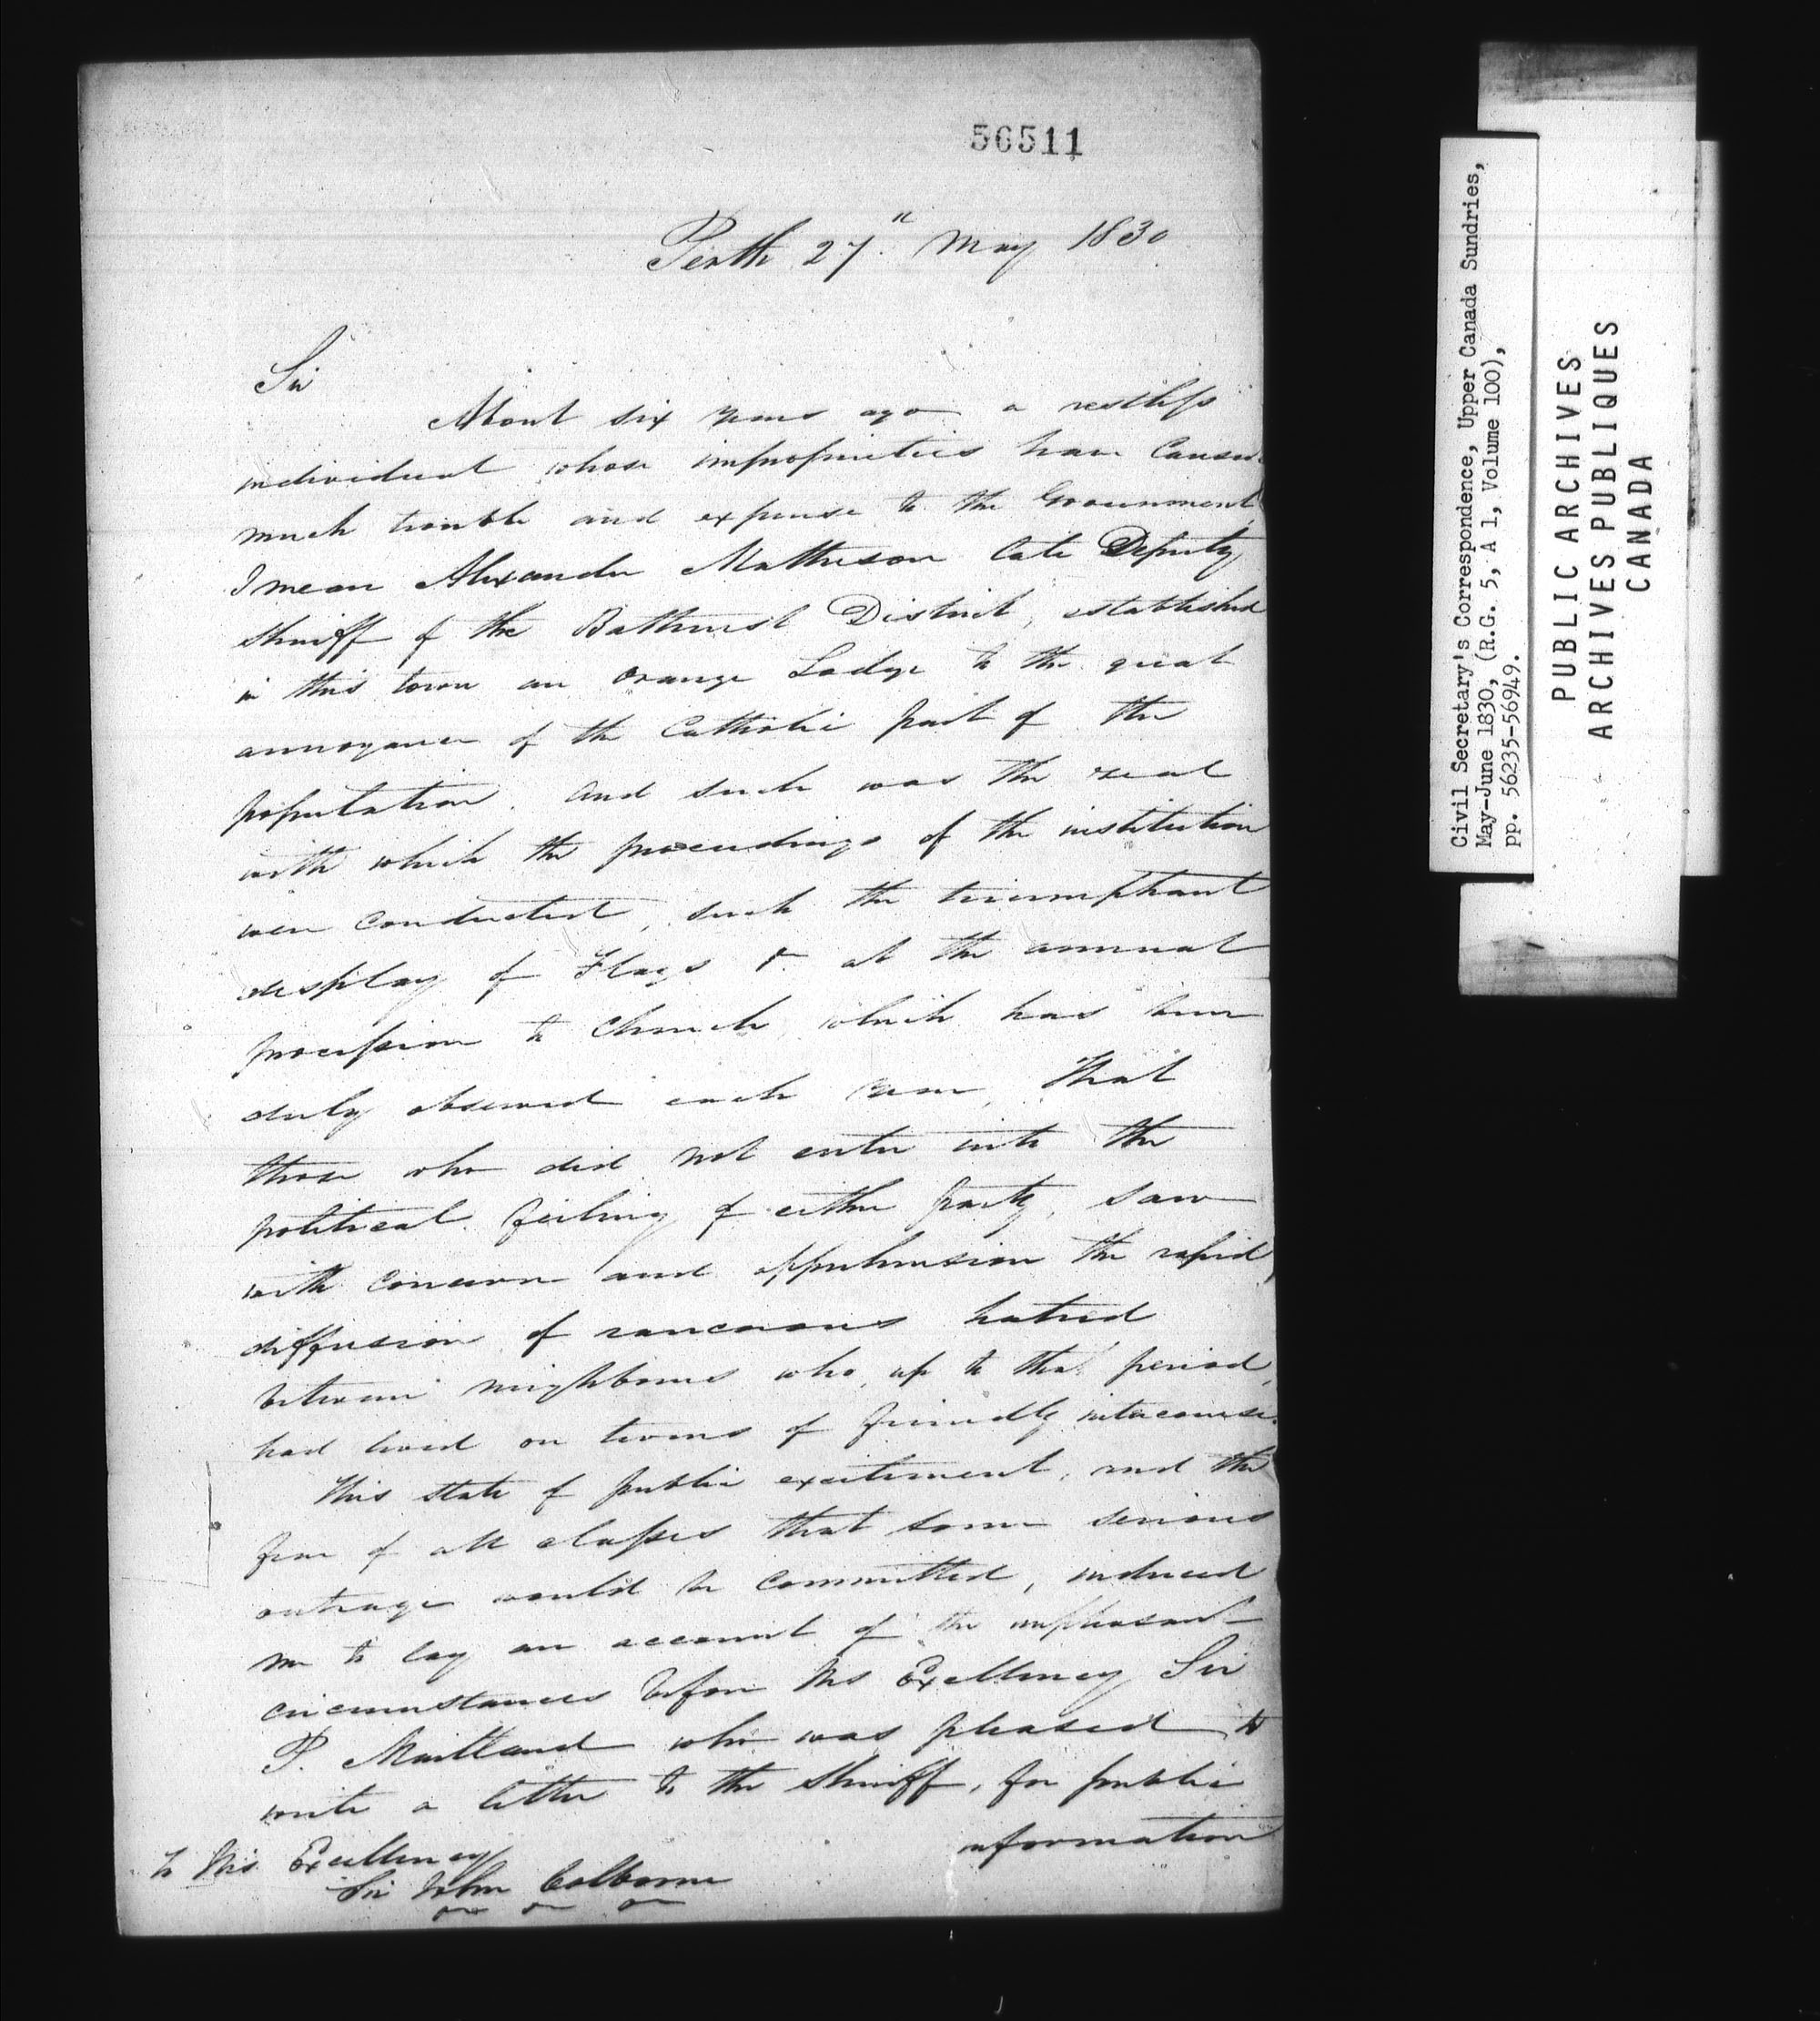 56511
Perth 27th May 1830
Sir
About six years ago a restless
individual whose improprieties have Caused
much trouble and expense to the Government,
I mean Alexander Matheson late Deputy
Sheriff of the Bathurst District, established
in this town an Orange Lodge to the great
annoyance of the Catholic part of the
population. And such was the zeal
with which the proceedings of the institution
were conducted, such the triumphant
display of Flags &c at the annual
procession to Church which has been
duly observed each year, that
those who did not enter into the
political feeling of either party, saw
with concern and apprehension the rapid
diffusion of rancorous hatred
between neighbours who, up to that period,
had lived on terms of friendly intercourse.
This state of public excitement, and the
fear of all classes that some serious
outrage would be committed, induced
me to lay an account of the unpleasant
circumstances before His Excellency Sir
P. Maitland who was pleased to
write a letter to the Sheriff, for public
information
To His Excellency
Sir John Colborne
&c &c &c
Civil Secretary's Correspondence, Upper Canada Sundries,
May-June 1830, (R.G. 5, A 1, Volume 100),
pp. 56235-56949.
PUBLIC ARCHIVES
ARCHIVES PUBLIQUES
CANADA